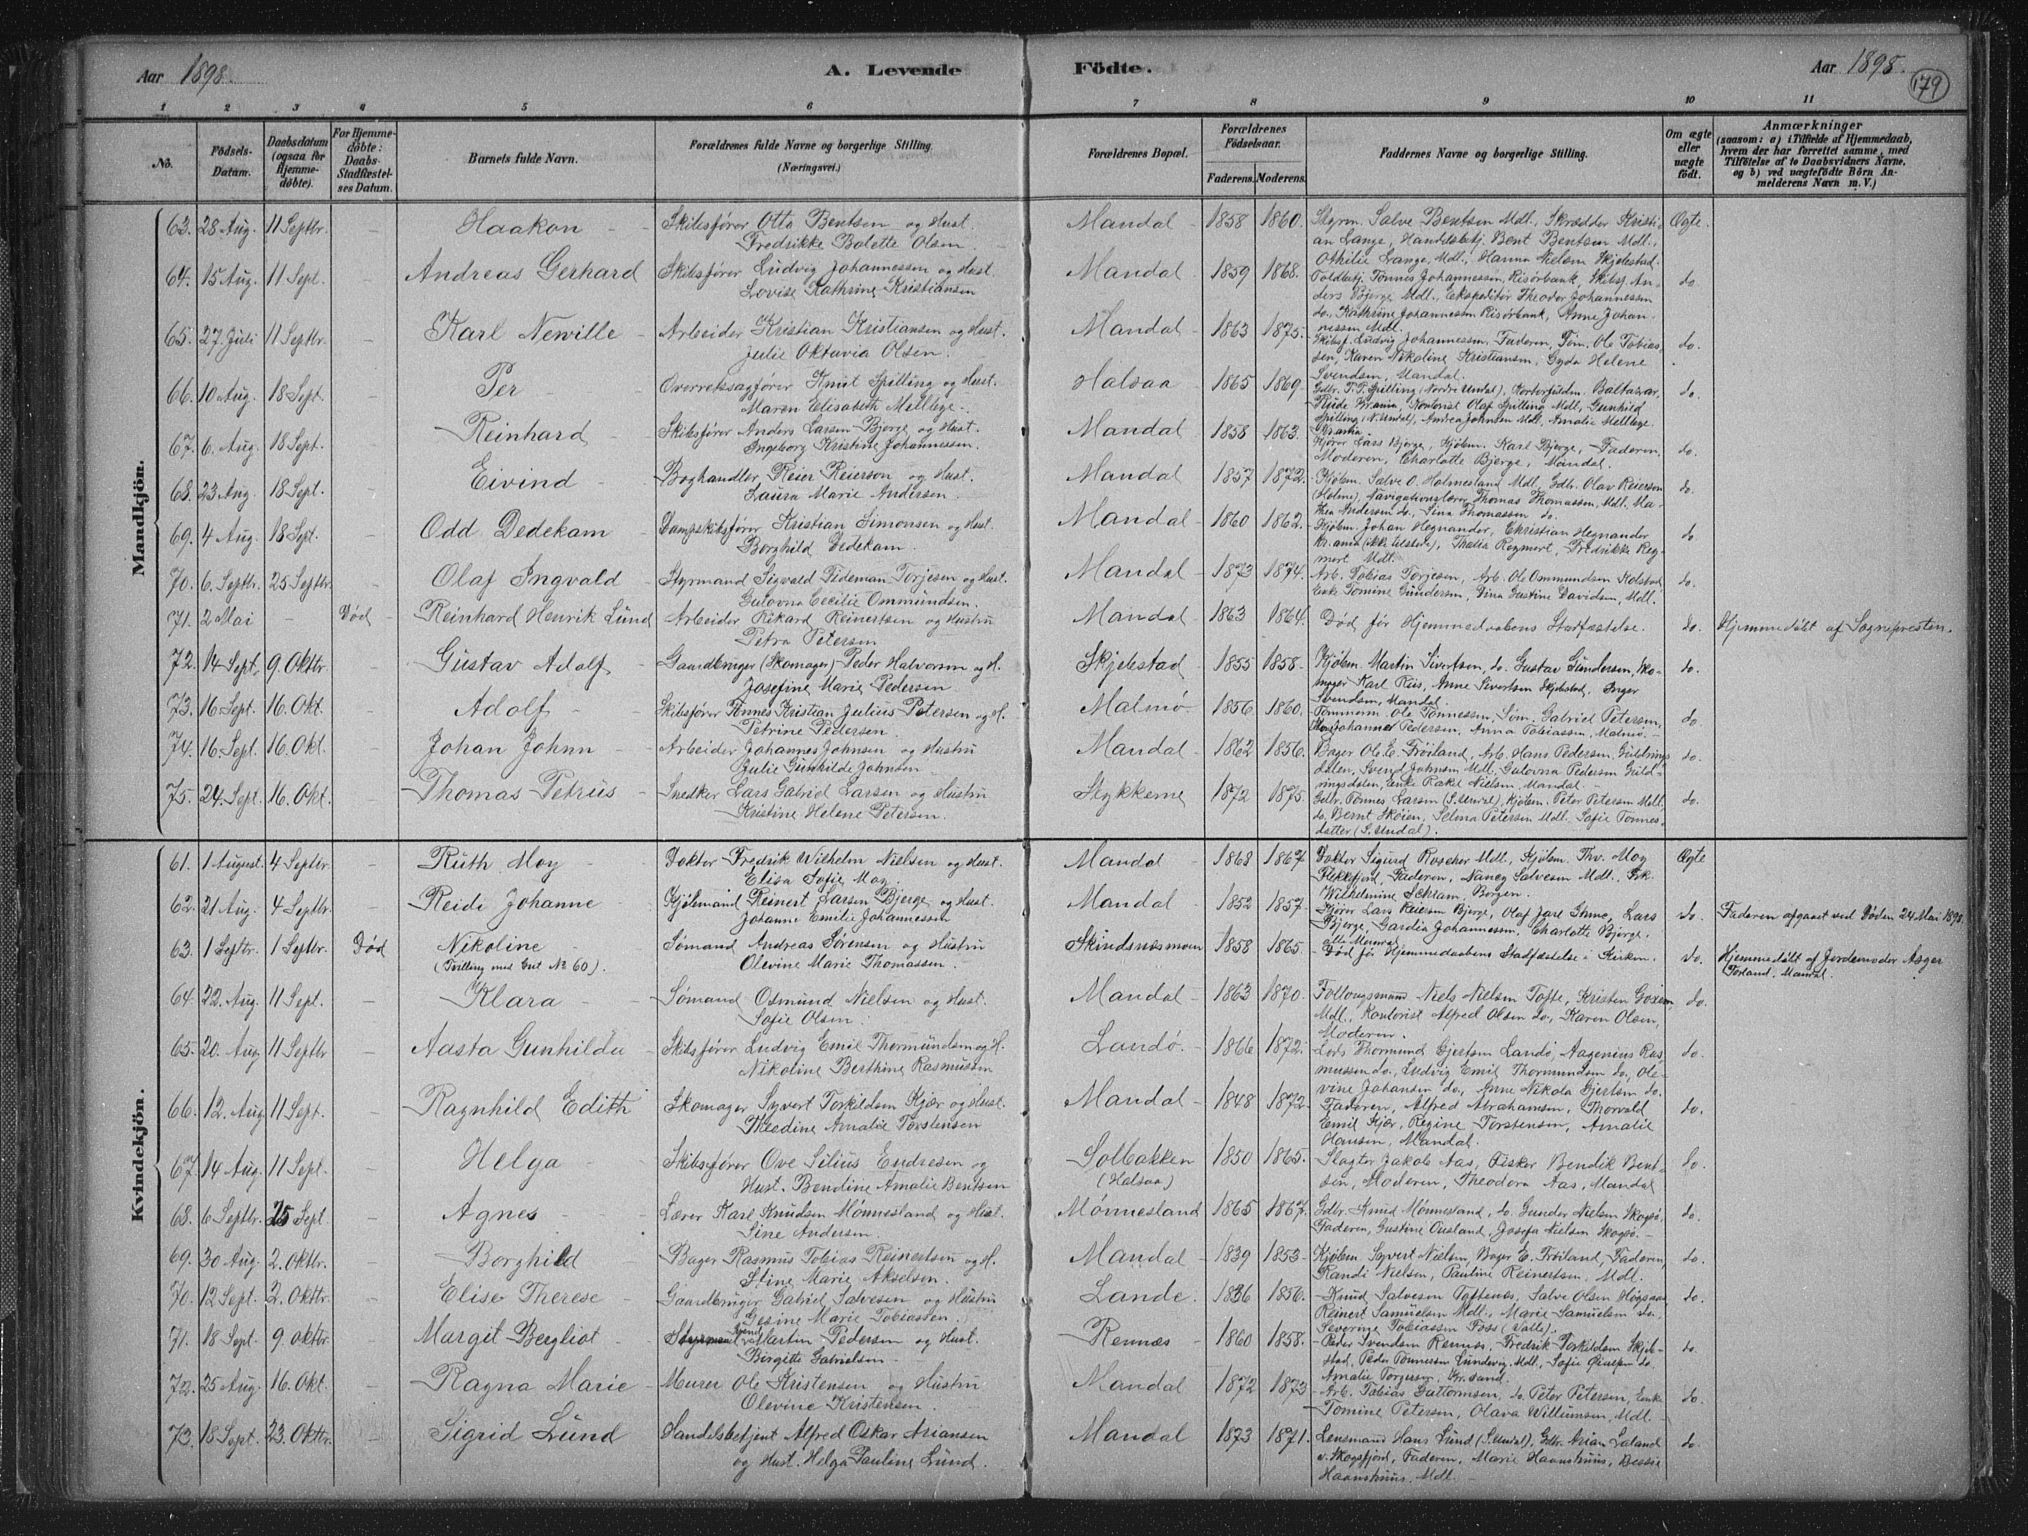 Aar 1898. A. Levende Födte. Aar 1898. 179
1 2 3 4 5 6 7 8 9 10 11
No. Födsels-Datum. Daabsdatum (ogsaa for Hjemmedøbte). For Hjemmedøbte: Daabs-Stadfæstelses Datum. Barnets fulde Navn. Forældrenes fulde Navne og borgerlige Stilling. (Næringsvei.) Forældrenes Bopæl. Forældrenes Födselsaar. Faderens. Moderens. Faddernes Navne og borgerlige Stilling. Om ægte eller uægte født. Anmærkninger (saasom: a) i Tilfælde af Hjemmedaab, hvem der har forrettet samme, med Tilföielse af to Daabsvidners Navne, og b) ved uægtefödte Börn Anmelderens Navn m. V.)
Mandkjön.
63. 28 Aug. 11 Septbr. - Haakon - Skibsfører Otto Bentsen og Hust. Mandal - 1858 1860. Styrm. Salve Bentsen Mdl., Skrædder Kristi- Ægte.
Fredrikke Bolette Olsen. an Lange, Handelsbetj. Bent Bentsen Mdl.,
Othilie Lange, Mdl., Hanna Nielsen Skjebstad.
64. 15 Aug. 11 Sept. - Andreas Gerhard Skibsfører Ludvig Johannessen og Hust. Mandal - 1859 1868. Toldbetj. Tønnes Johannessen, Risørbank, Skibsf. An- do.
Lovise Kathrine Kristiansen ders Bjerge Mdl., Ekspeditør Theodor Johannessen
do, Kathrine Johannessen Risørbank, Anne Johan
nessen Mdl.
65. 27 Juli 11 Septbr. - Karl Newille - Arbeider Kristian Kristiansen og Hust. Mandal - 1863 1875. Skibsf. Ludvig Johannessen, Faderen, Tøm. Ole Tobias- do.
Julie Oktavia Olsen. sen, Karen Nikoline Kristiansen, Gyda Helene
Svendsen, Mandal.
66. 10 Aug. 18 Sept. - Per - Overretssagfører Knut Spilling og Hust. Halsaa - 1865 1869. Gdbr. T. P. Spilling (Nordre Undal), Baltasar do.
Maren Elisabeth Mellbye. Rude Kr.ania, Kontorist Olaf Spilling Mdl., Gunhild
Spilling (N. Undal), Andrea Johnsen Mdl, Amalie Mellbye.
67. 6. Aug. 18 Sept. - Reinhard - Skibsfører Anders Larsen Bjerge og Hust. Mandal - 1858 1863. Lars Bjerge, Kjøbm. Karl Bjerge, Faderen, do.
Ingeborg Kristine Johannessen. Moderen, Charlotte Bjerge, Mandal.
68. 23 Aug. 18 Sept. - Eivind - Boghandler Reier Reierson og Hust. Mandal - 1857 1872. Kjøbm. Salve O. Holmesland Mdl., Gdbr. Olav Reierson do.
Laura Marie Andersen. (Holme), Navigationslærer Thomas Thomassen, Mdl. Ma-
thea Andersen do, Sina Thomassen do.
69. 4 Aug. 18 Sept. - Odd Dedekam - Dampskibsfører Kristian Simonsen og Hust. Mandal - 1860 1862. Kjøbm. Johan Hegnander, Christian Hegnander do.
Borghild Dedekam. Kr.ania (ikke tilstede), Thalia Regmert, Fredrikke Reg-
mert Mdl.
70. 6. Septbr. 25 Septbr. - Olaf Ingvald - Styrmand Sigvald Tideman Torjesen og Hust. Mandal - 1873 1874. Arb. Tobias Torjesen, Arb. Ole Ommundsen Holstad, do.
Gulovna Cecilie Ommundsen. Enke Tomine Gundersen, Dina Gustine Davidsen, Mdl.
71. 2 Mai - Død Reinhard Henrik Lund Arbeider Rikard Reinertsen og Hustru Mandal - 1863 1864. Død før Hjemmedaabens Stadfæstelse. do. Hjemmedøbt af Sognepresten.
Petra Petersen.
72. 14 Sept. 9. Oktbr. - Gustav Adolf - Gaardbruger (Skomager) Peder Halvorsen og H. Skjebstad - 1855 1858. Kjøbm. Martin Sivertsen, do. Gustav Gundersen, Sko- do.
Josefine Marie Pedersen. mager Karl Riis, Anne Sivertsen Skjebstad, Inger
Svendsen, Mandal.
73. 16 Sept. 16. Okt. - Adolf - Skibsfører Tønnes Kristian Julius Petersen og H. Malmø - 1856 1860. Tømmerm. Ole Tønnessen, Søm. Gabriel Petersen, do.
Petrine Pedersen. Johannes Pedersen, Anna Tobiassen, Malmø.
74. 16. Sept. 16. Okt. - Johan Johnn - Arbeider Johannes Johnsen og Hustru Mandal - 1862 1856. Bager Ole E. Frøiland, Arb. Hans Pedersen Guldrings- do.
Julie Gunhilde Johnsen. dalen, Svend Johnsen Mdl. Gulovna Pedersen Guld-
ringsdalen, Enke Rakel Nielsen, Mandal.
75. 24. Sept. 16. Okt. - Thomas Petrus - Snedker Lars Gabriel Larsen og Hustru Stykkerne - 1872 1875. Gdbr. Tønnes Larsen (S. Undal), Kjøbm. Peter Petersen Mdl. do.
Kristine Helene Petersen. do. Bernt Skøien, Selma Petersen Mdl, Sofie Tønnes-
datter (S. Undal).
Kvindekjön.
61. 1 August 4 Septbr. - Ruth Moy - Doktor Fredrik Wilhelm Nielsen og Hust. Mandal - 1863 1867 Doktor Sigurd Roscher Mdl., Kjøbm. Thv. Moy Ægte
Elisa Sofie Moy. Flekkefjord, Faderen, Nancy Salvesen Mdl., Frk.
Wilhelmine Schram, Bergen.
62. 21 Aug. 4 Septbr. - Reidi Johanne - Kjøbmand Reinert Larsen Bjerge og Hust. Mandal - 1852 1857. Lars Reiersen Bjerge, Olaf Jarl Lars do. Faderen afgaaet ved Døden 24 Mai 1898.
Johanne Emilie Johannessen Bjerge, Gardia Johannessen, Charlotte Bjerge.
63. 1 Septbr. 1 Septbr. Død Nikoline - Sømand Andreas Sørensen og Hustru Skindsnesmoen 1858 1865. Død før Hjemmedaabens Stadfæstelse i Kirken. do. Hjemmedøbt af Jordemoder Asger
(Tvilling med Gut No 60). Olevine Marie Thomassen. Torland, Mandal.
64. 22. Aug. 11 Sept. - Klara - Sømand Osmund Nielsen og Hust. Mandal - 1863 1870. Niels Nielsen Tofte, Kristen do.
Sofie Olsen. Mdl., Kontorist Alfred Olsen do., Karen Olsen,
Moderen.
65. 20. Aug. 11 Septbr - Aasta Gunhilda - Skibsfører Ludvig Emil Thormundsen og H. Landø. - 1866 1872. Lods Thormund Gjertsen Landø, Aagenius Ras- do.
Nikoline Berthine Rasmussen mussen do., Ludvig Emil Thormundsen do, Ole-
vine Johansen do., Anne Nikola Gjertsen do.
66. 12. Aug. 11 Sept. - Ragnhild Edith - Skomager Syvert Torkildsen Kjær og Hust. Mandal - 1848 1872. Faderen, Alfred Abrahamsen, Thorvald do.
Theodine Amalie Torstensen Emil Kjær, Regine Torstensen, Amalie
Hansen, Mandal.
67. 14 Aug. 11 Sept. - Helga - Skibsfører Ove Silius Endresen og Solbakken 1850 1865. Slagter Jakob Aas, Fisker Bendik Bent- do.
Hust. Bendine Amalie Bentsen (Halsaa) sen, Moderen, Theodora Aas, Mandal
68. 6 Septbr. 25 Sept. - Agnes - Lærer Karl Knudsen Mønnesland og Hust. Mønnesland 1865 1867. Gdbr. Knud Mønnesland, do. Gunder Nielsen Skogsø, do.
Sine Andersen. Faderen, Gustine Ousland, Josefa Nielsen Skogsø.
69. 30 Aug. 2. Oktbr. - Borghild - Bager Rasmus Tobias Reinertsen og H. Mandal - 1839 1853. Kjøbm. Syvert Nielsen, Bager E. Frøiland, Faderen, do.
Stine Marie Akselsen. Randi Nielsen, Pauline Reinertsen, Mdl.
70. 12 Sept. 2. Oktbr. - Elise Therese - Gaardbruger Gabriel Salvesen og Hustru Lande. - 1836 1856. Knud Salvesen Toftenes, Salve Olsen Høgsaas, do.
Gesine Marie Tobiassen. Reinert Samuelsen Mdl., Marie Samuelsen do.
Severine Tobiassen Foss (Valle).
71. 18 Sept. 9 Oktbr. - Margit Bergliot - Martin Pedersen og Hust. Rennæs - 1860 1858. Peder Svendsen Rennæs, Fredrik Torkildsen Skjeb- do.
Birgitte Gabrielsen. stad, Peder Tønnessen Lundevig, Mdl., Sofie do.
Amalie Torjesen, Kr.sand.
72. 25 Aug. 16. Okt. - Ragna Marie - Murer Ole Kristensen og Hustru Mandal - 1872 1873 Arb. Tobias Guttormsen, do. Peter Petersen, Enke do.
Olevine Kristensen. Tomine Petersen, Olava Willumsen, Mdl.
73. 18 Sept. 23. Oktbr. - Sigrid Lund - Handelsbetjent Alfred Oskar Ariansen Mandal - 1873 1871. Lensmand Hans Lund (S. Undal), Gdbr. Arian Laland do.
og Hust. Helga Pauline Lund. v. Skogsfjord, Faderen, Marie Haanshuus, Bessie
Haanshuus, Mdl.